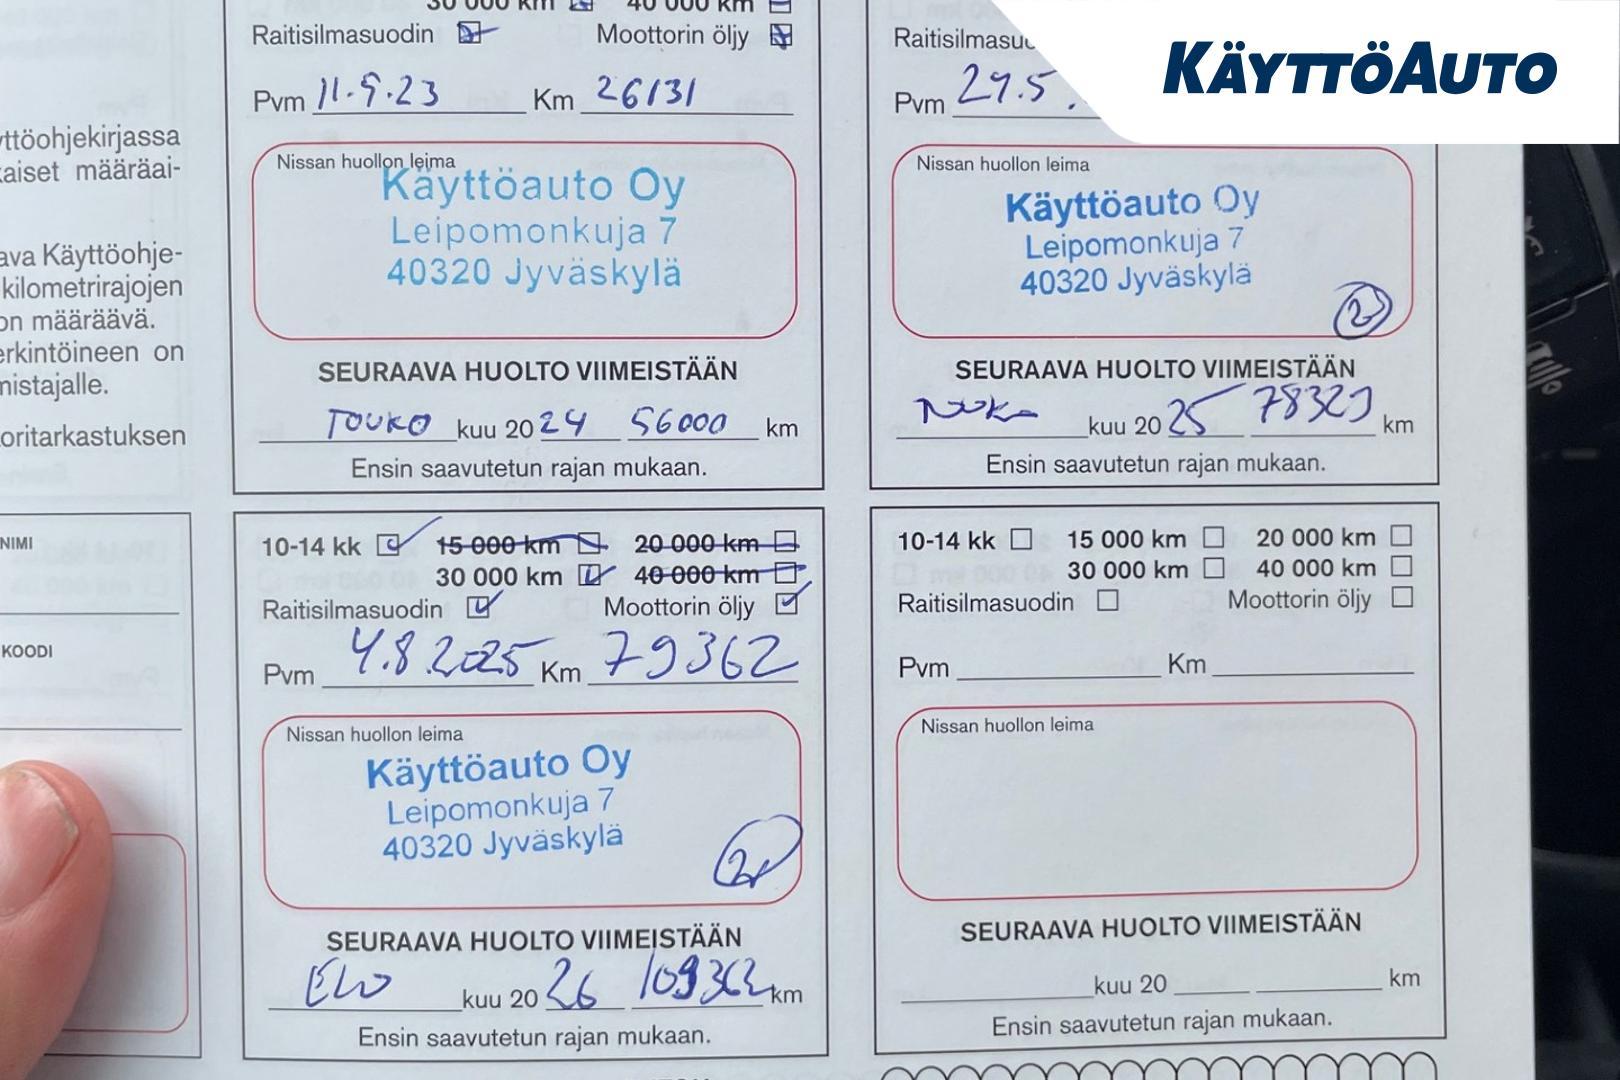 KÄYTTÖAUTO
30 000 km 40 000 km
Raitisilmasuodin Moottorin öljy
Pvm 11.9.23 Km 26131
Nissan huollon leima
Käyttöauto Oy
Leipomonkuja 7
40320 Jyväskylä
SEURAAVA HUOLTO VIIMEISTÄÄN
TOUKO kuu 20 24 56000 km
Ensin saavutetun rajan mukaan.
Pvm 29.5.
Nissan huollon leima
Käyttöauto Oy
Leipomonkuja 7
40320 Jyväskylä
2
SEURAAVA HUOLTO VIIMEISTÄÄN
kuu 20 25 78329 km
Ensin saavutetun rajan mukaan.
10-14 kk 15 000 km 20 000 km
30 000 km 40 000 km
Raitisilmasuodin Moottorin öljy
Pvm 4.8.2025 Km 79362
Nissan huollon leima
Käyttöauto Oy
Leipomonkuja 7
40320 Jyväskylä
SEURAAVA HUOLTO VIIMEISTÄÄN
ELO kuu 20 26 109362 km
Ensin saavutetun rajan mukaan.
10-14 kk 15 000 km 20 000 km
30 000 km 40 000 km
Raitisilmasuodin Moottorin öljy
Pvm Km
Nissan huollon leima
SEURAAVA HUOLTO VIIMEISTÄÄN
kuu 20 km
Ensin saavutetun rajan mukaan.
yttöohjekirjassa
aiset määräai-
ava Käyttöohje-
kilometrirajojen
on määräävä.
erkintöineen on
nistajalle.
oritarkastuksen
NIMI
KOODI